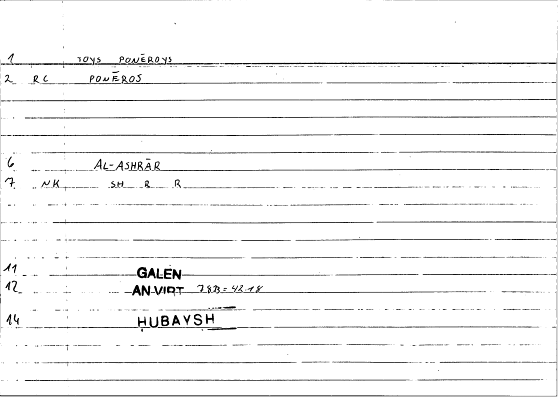 1 TOYS PONĒROYS
2 RC PONĒROS
6 AL-ASHRĀR
7 NK SH R R
11 GALEN
12 AN.VIRT 788=42.18
14 ḤUBAYSH